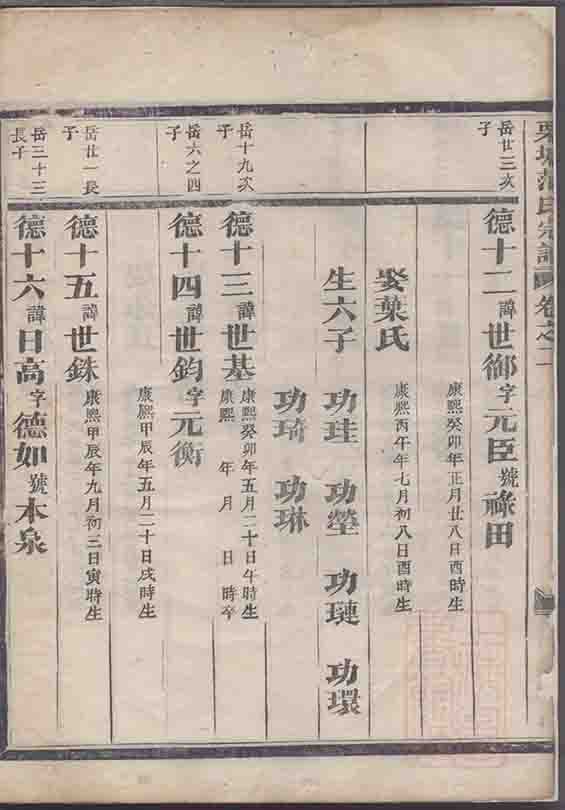 宗譜 卷之二
岳廿三次子
德十二 諱世御 字元臣 號祿田
康熙癸卯年正月廿八日酉時生
娶葉氏
康熙丙午年七月初八日酉時生
生六子 功珪 功瑩 功璉 功環
功琦 功琳
岳十九次子
德十三 諱世基 康熙癸卯年五月二十日午時生
康熙 年 月 日 時卒
岳六之四子
德十四 諱世鈞 字元衡
康熙甲辰年五月二十日戌時生
岳廿一長子
德十五 諱世銖 康熙甲辰年九月初三日寅時生
岳二十三長子
德十六 諱日高 字德如 號本泉